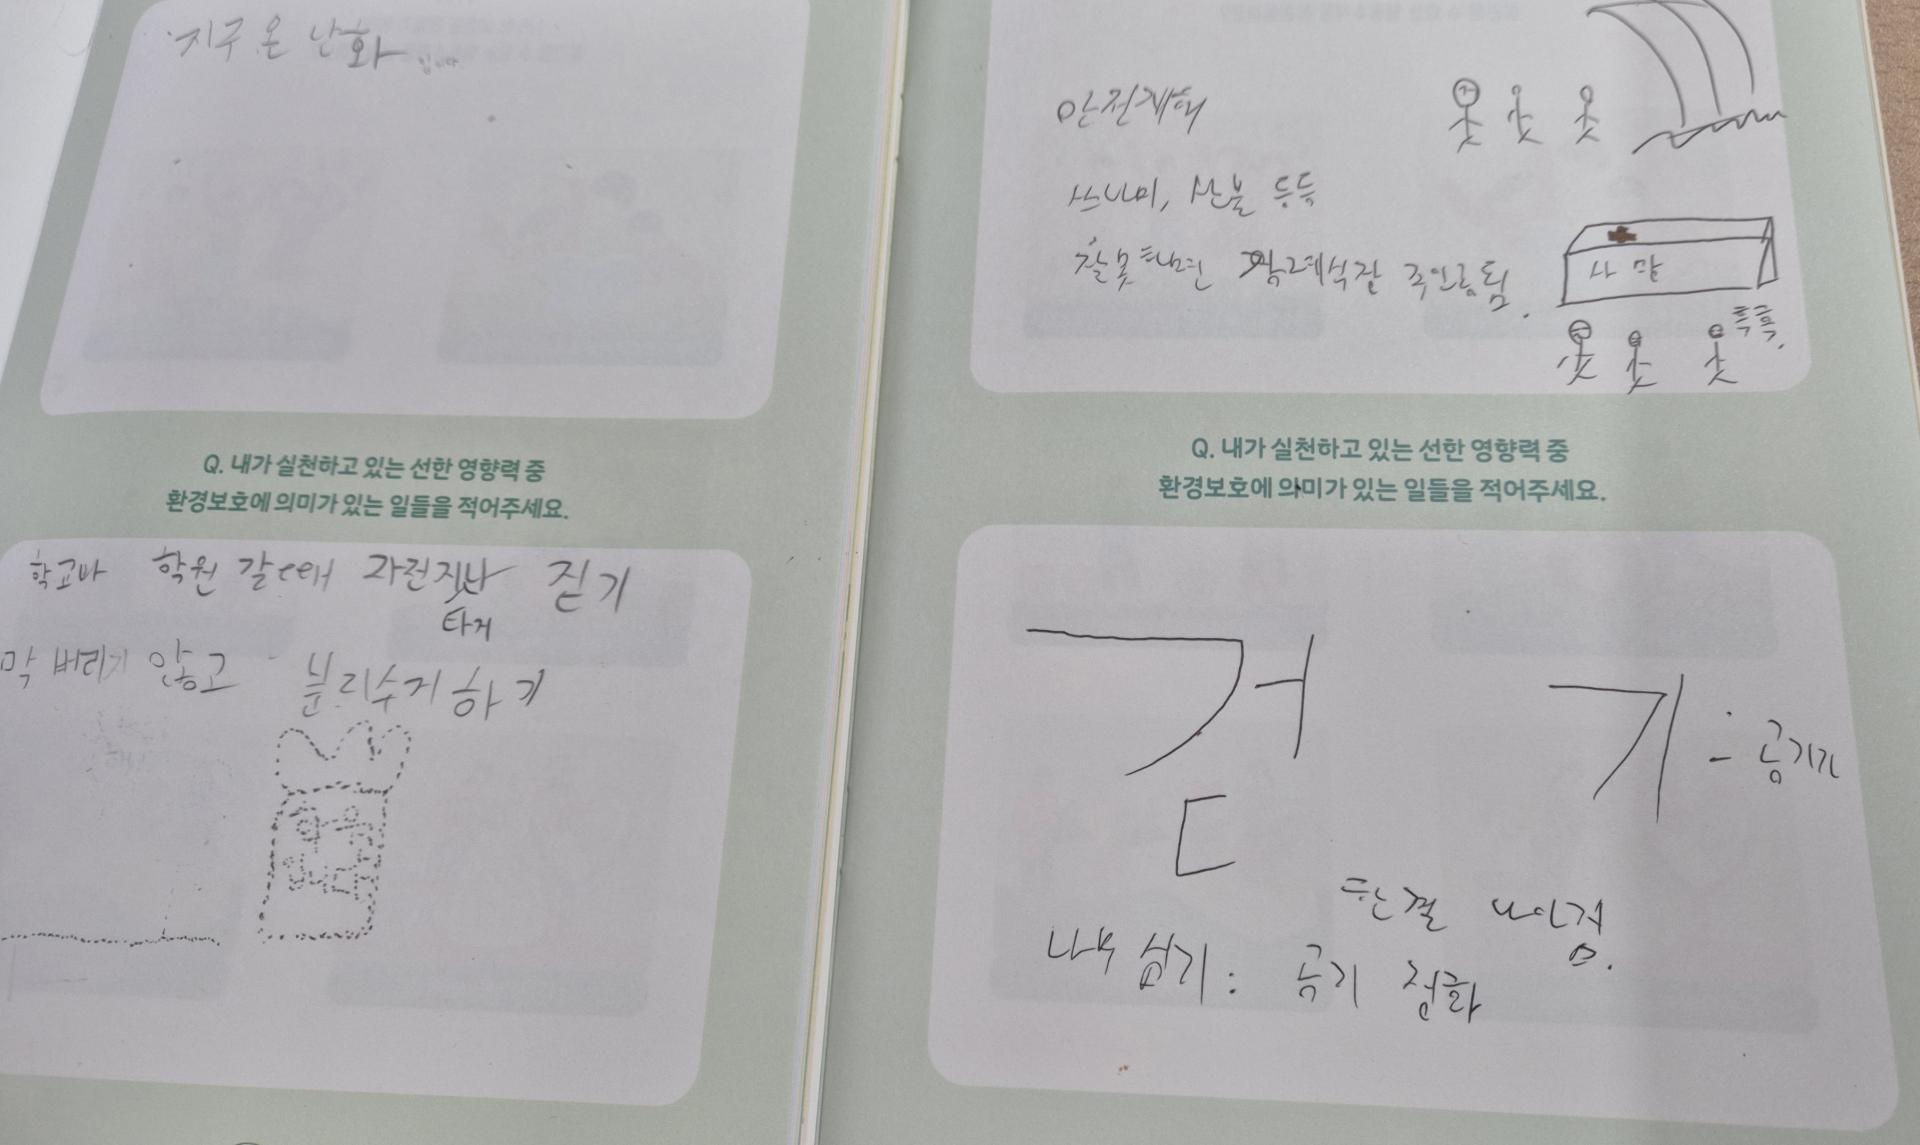 지구 온 난화 입니다.
Q. 내가 실천하고 있는 선한 영향력 중
환경보호에 의미가 있는 일들을 적어주세요.
학교나 학원 갈때 자전거나 걷기
타거
막 버리지 않고 분리수거하기
안전재해
쓰나미, 산불 등등
잘못하면 장례식장 주인공됨.
사망
흑흑.
Q. 내가 실천하고 있는 선한 영향력 중
환경보호에 의미가 있는 일들을 적어주세요.
걷 기 : 공기가
한결 나아짐.
나무 심기 : 공기 정화